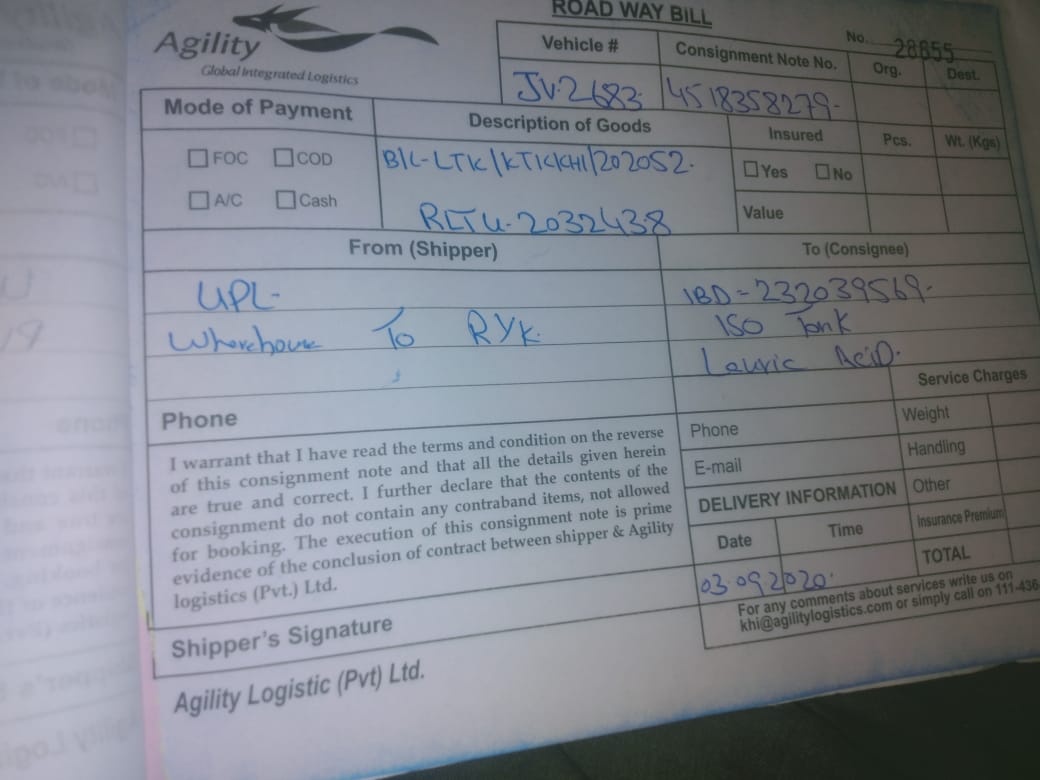 ROAD WAY BILL
Agility
Global Integrated Logistics
No. 28655
Vehicle #
Consignment Note No.
Org.
Dest.
JV-2683
4518358279-
Mode of Payment
Description of Goods
Insured
Pcs.
Wt. (Kgs)
FOC
COD
B/L-LTK/KTI/KHI/202052.
Yes
No
A/C
Cash
RLTU-2032438
Value
From (Shipper)
To (Consignee)
UPL-
IBD-232039569-
Wharehouse To RYK.
ISO Tank
Lauric AciD.
Phone
Service Charges
I warrant that I have read the terms and condition on the reverse
of this consignment note and that all the details given herein
are true and correct. I further declare that the contents of the
consignment do not contain any contraband items, not allowed
for booking. The execution of this consignment note is prime
evidence of the conclusion of contract between shipper & Agility
logistics (Pvt.) Ltd.
Phone
Weight
E-mail
Handling
DELIVERY INFORMATION
Other
Date
Time
Insurance Premium
03.09.2020.
TOTAL
Shipper's Signature
For any comments about services write us on
khi@agilitylogistics.com or simply call on 111-436
Agility Logistic (Pvt) Ltd.